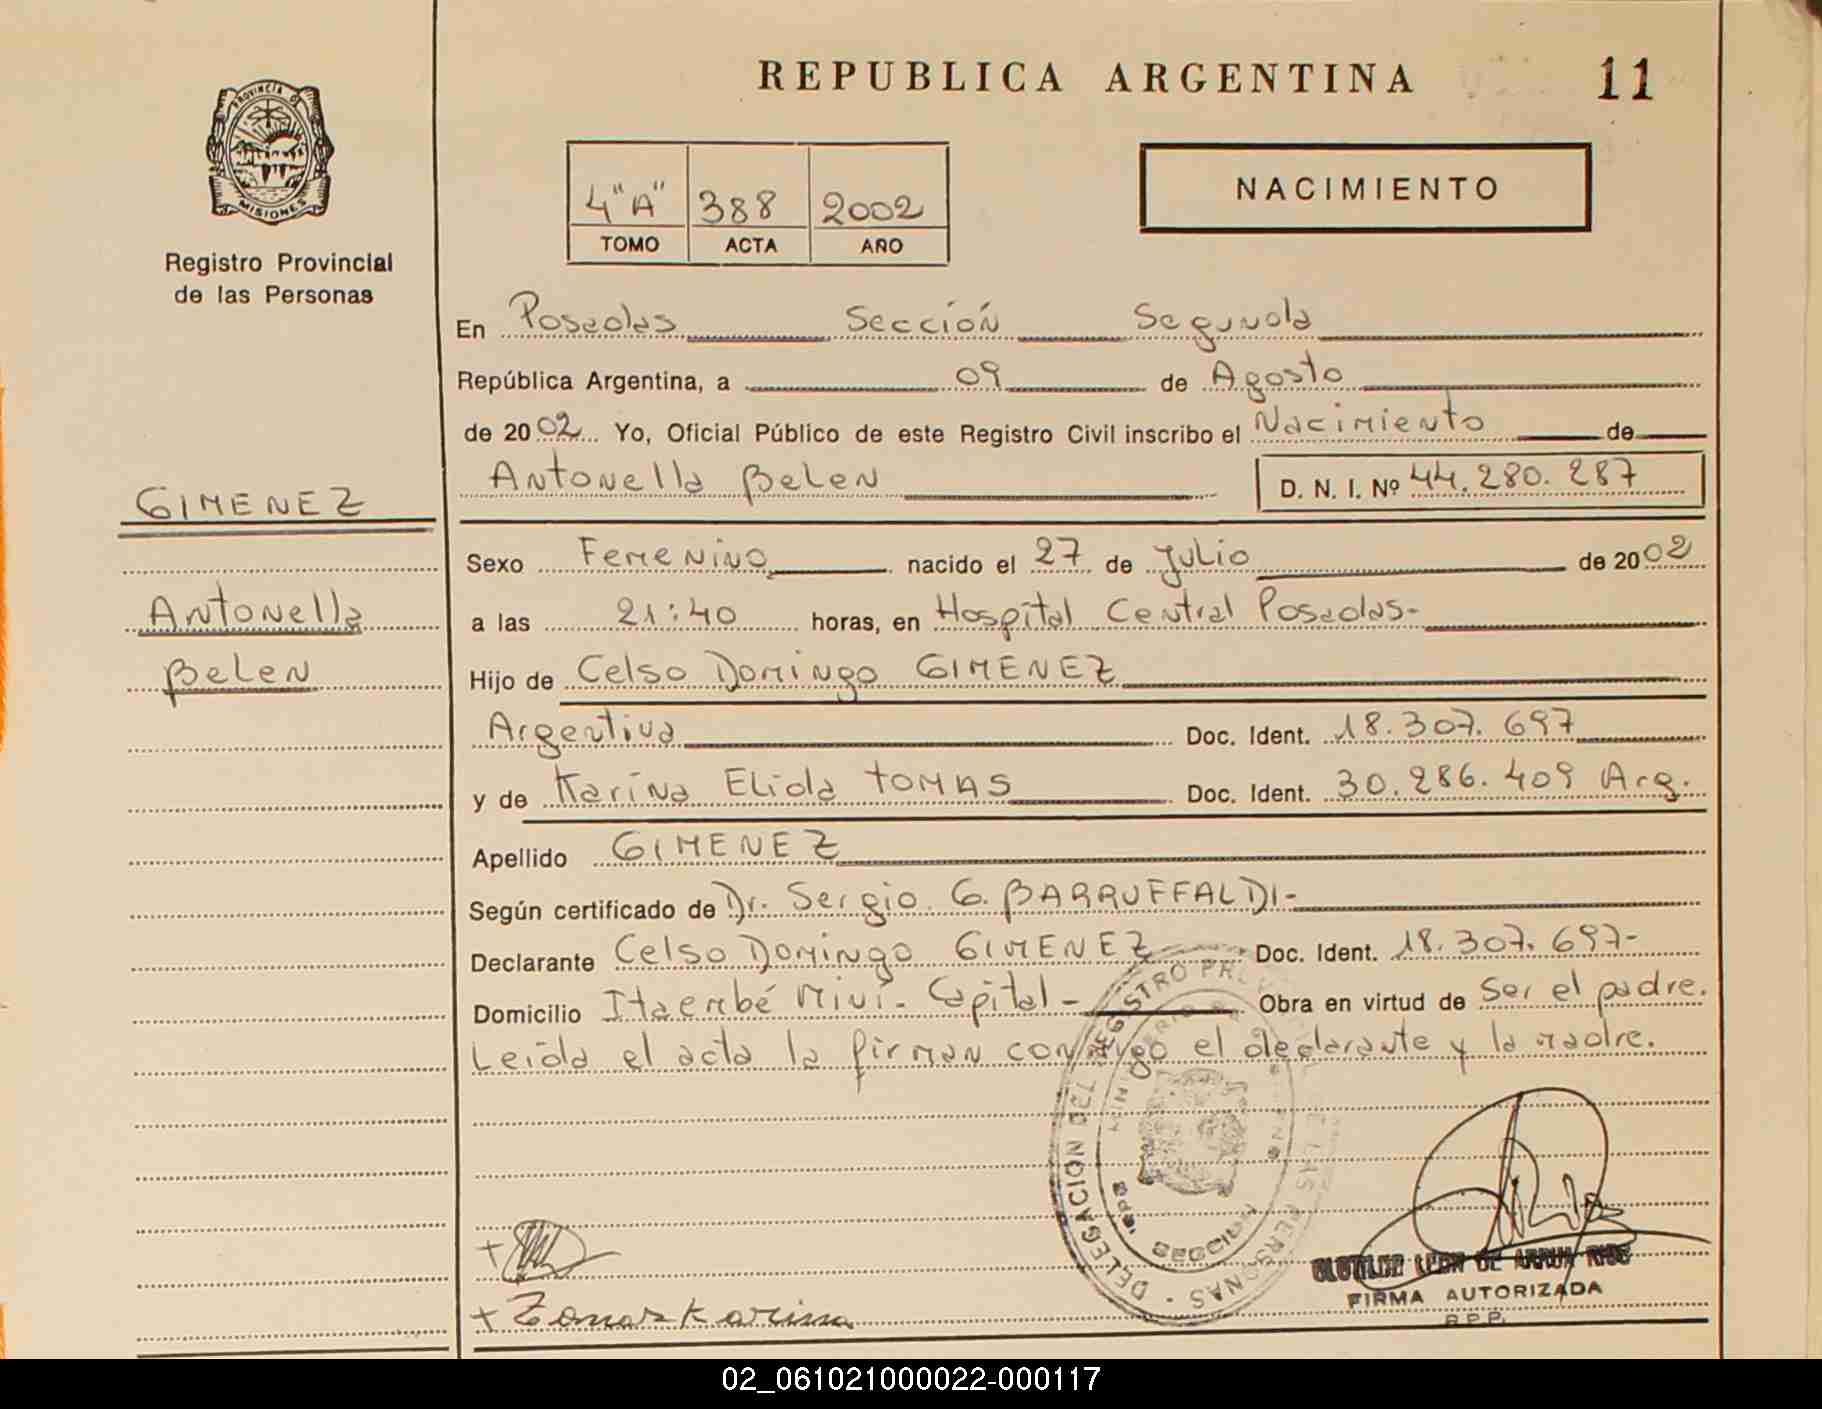 REPUBLICA ARGENTINA 11
PROVINCIA DE
MISIONES
Registro Provincial
de las Personas
4"A" 388 2002
TOMO ACTA AÑO
NACIMIENTO
En Posadas Sección Segunda
República Argentina, a 09 de Agosto
de 2002 Yo, Oficial Público de este Registro Civil inscribo el Nacimiento de
Antonella Belen D. N. I. Nº 44.280.287
GIMENEZ
Antonella
Belen
Sexo Femenino nacido el 27 de Julio de 2002
a las 21:40 horas, en Hospital Central Posadas-
Hijo de Celso Domingo GIMENEZ
Argentina Doc. Ident. 18.307.697
y de Karina Elida TOMAS Doc. Ident. 30.286.409 Arg.
Apellido GIMENEZ
Según certificado de Dr. Sergio G. BARRUFFALDI-
Declarante Celso Domingo GIMENEZ Doc. Ident. 18.307.697-
Domicilio Itaembé Miní- Capital- Obra en virtud de Ser el padre.
Leída el acta la firman conmigo el declarante y la madre.
DELEGACION DEL REGISTRO PROV DE LAS PERSONAS
FIRMA AUTORIZADA
R.P.P.
02_061021000022-000117